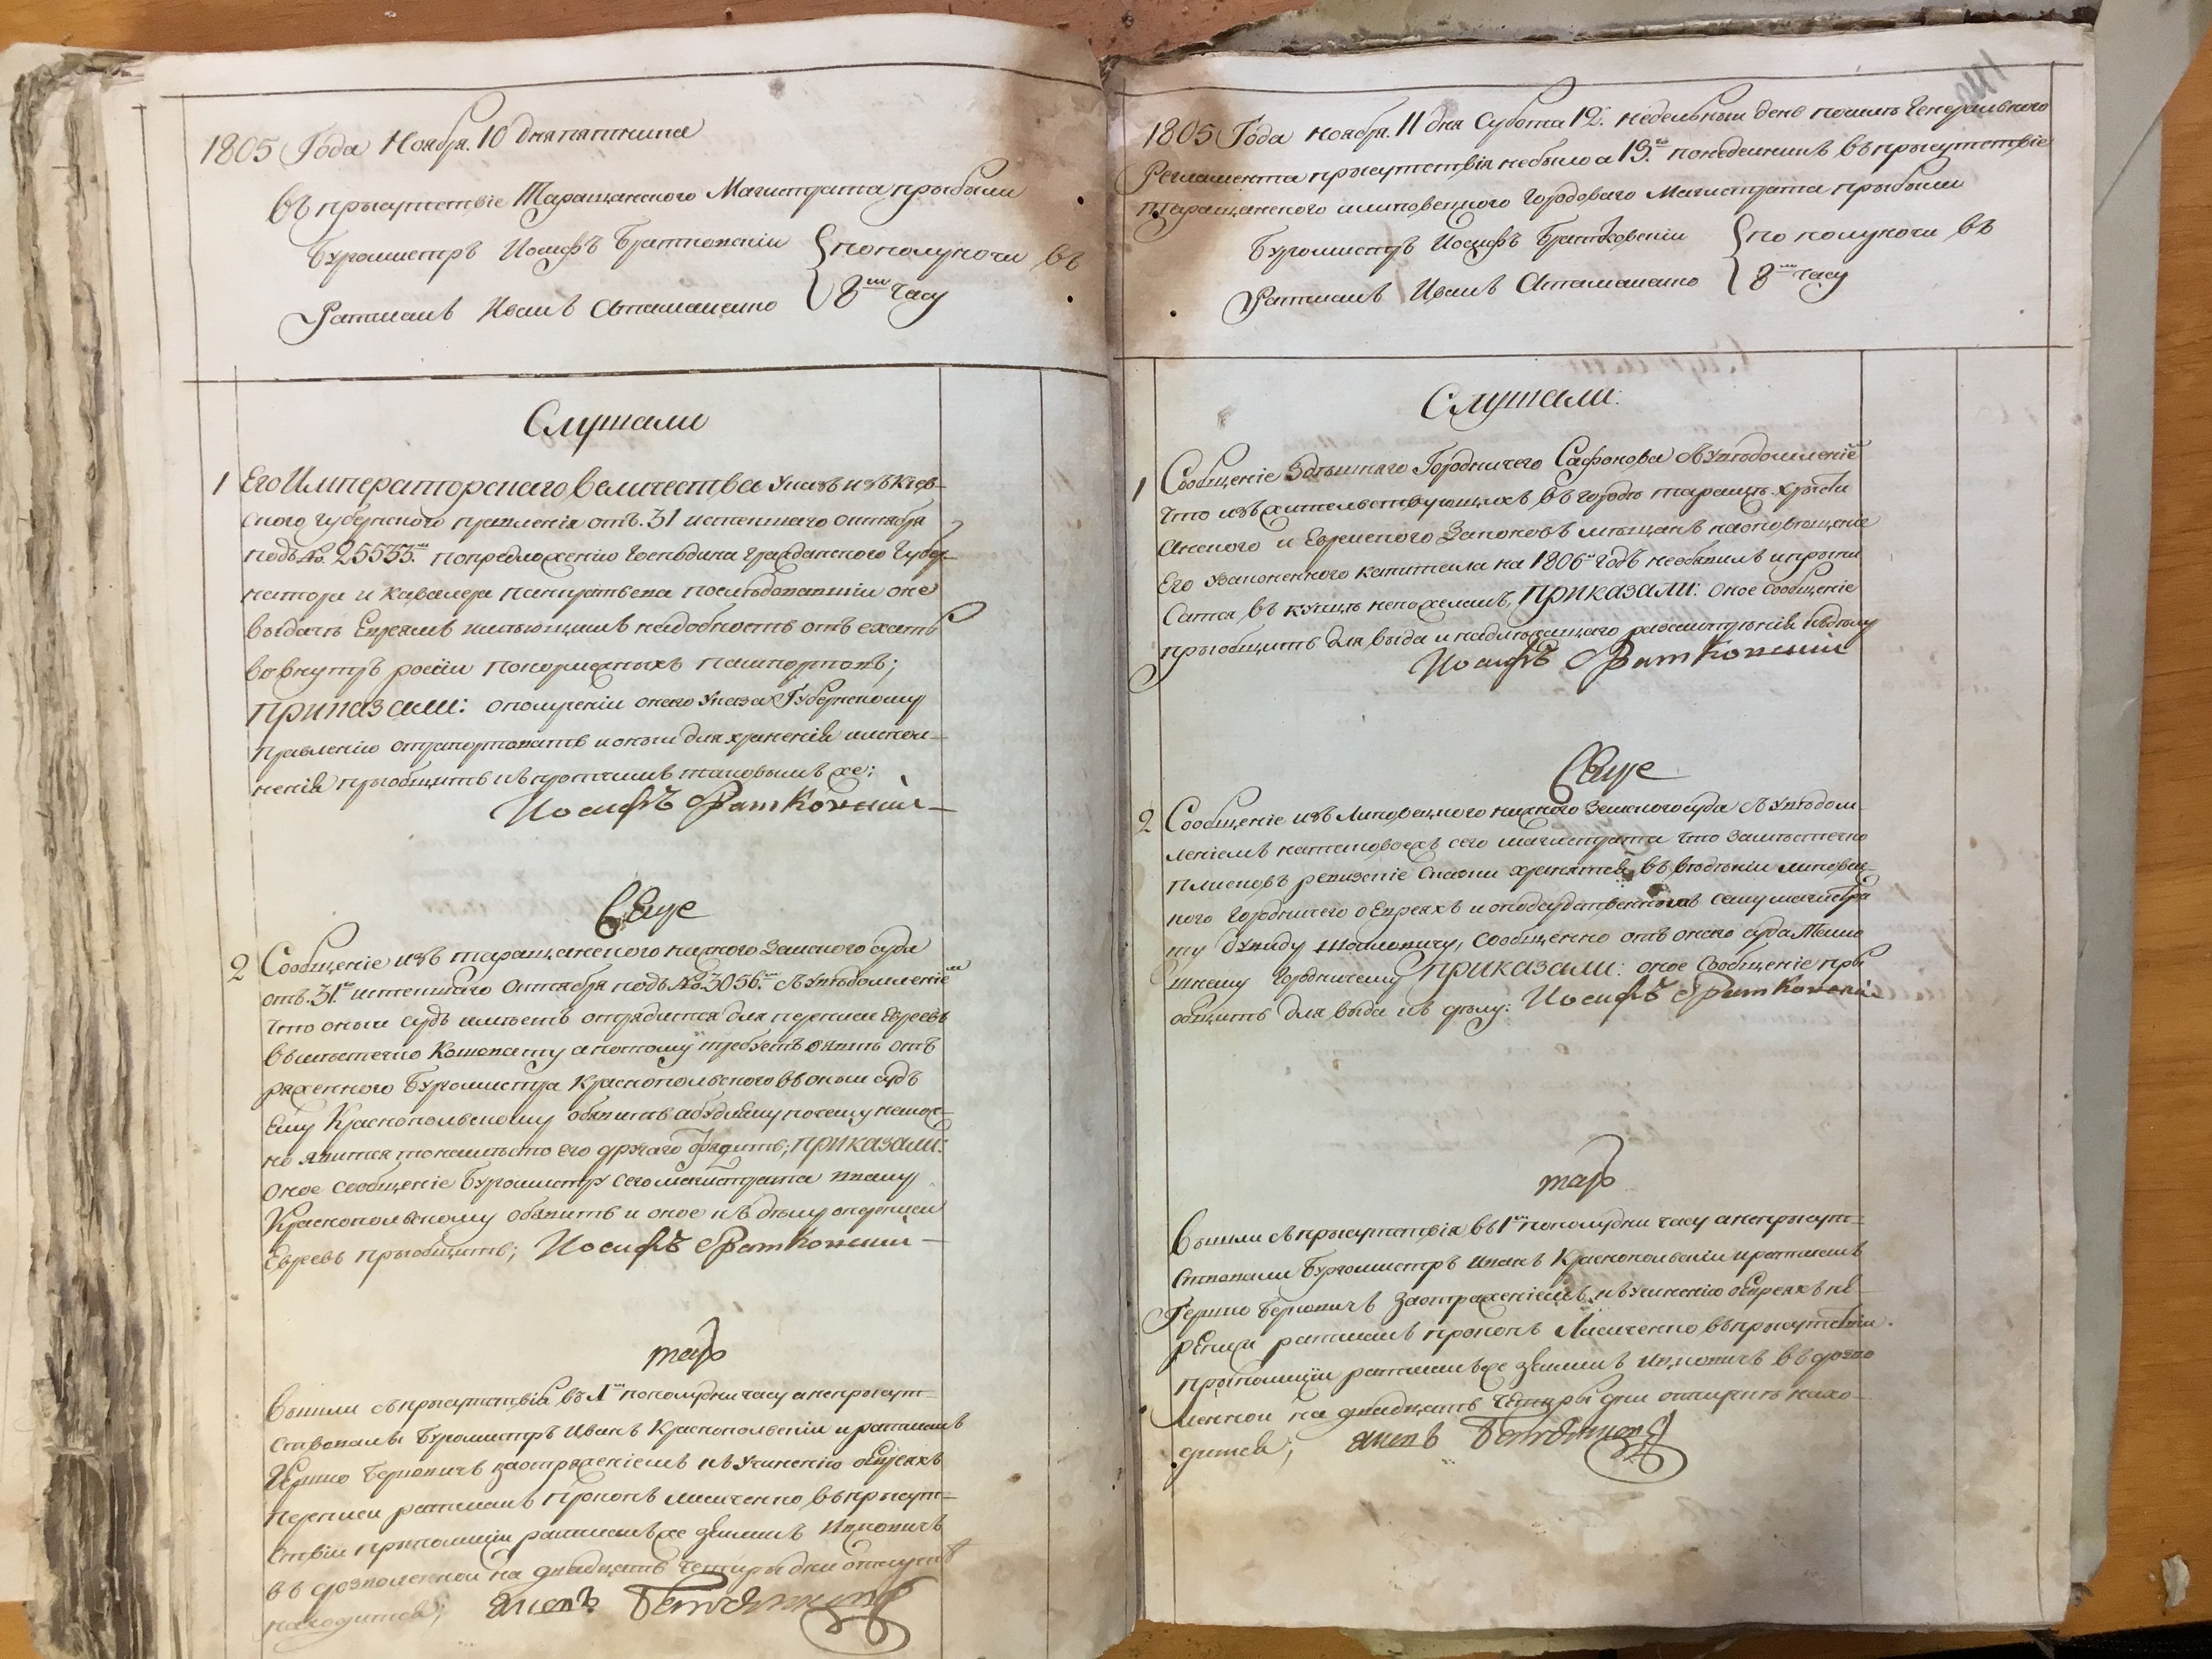 1805 Года Ноября 10 дня пятница
въ присутствіе Таращанского Магистрата прибыли
Бургомистръ Иосифъ Братковскій } пополуночи въ
Ратманъ Иванъ Атаманенко } 8м часу
Слушали
1 Его Императорскаго Величества Указъ изъ Кіев-
ского губернского правленія отъ 31 истекшаго октября
подъ № 25535м по предложенію Господина Гражданского Губер-
натора и Кавалера Панкратьева последовавшій о не
выдачи Евреямъ имеющимъ надобность отъехать
вовнутръ росіи покормежныхъ пашпортовъ;
Приказали: о полученіи оного Указа Губернскому
Правленію отрапортовать и оный для храненія и испол-
ненія приобщить къ протчимъ таковымъ же;
Иосифъ Братковскій
Еще
2 Сообщеніе изъ таращанского нижного Земского суда
отъ 31го истекшаго Октября подъ № 3056м съ уведомленіем
что оный судъ имееть отрядится для переписи Евреевъ
въ местечко Кошовату а потому требуетъ явить от-
ряженного Бургомистра Краснопольского въ оный судъ
Ему Краснопольскому объявить а буде ему почему немож-
но явится то наместо его другаго отрядить; Приказали:
Оное сообщеніе Бургомистру сего магистрата Ивану
Краснопольскому объявить и оное къ делу о переписи
Евреевъ приобщить; Иосифъ Братковскій
Вышли съ присутствія въ 1м пополудни часу а неприсут-
ствовали Бургомистръ Иванъ Краснопольскій и ратманъ
Гершко Берковичъ за отряженіемъ къ учиненію о Евреяхъ
переписи ратманъ Прокопъ Лисиченко въ присут-
ствіи
въ дозволенной на двадцать четыри дни отпуске
находится;
1805 Года ноября 11 дня Субота 12. недельный день почему Генерального
Регламента присутствія небыло а 13го понеделникъ въ присутствіе
таращанского и липовецкого Городоваго Магистрата прибыли
Бургомистръ Иосифъ Братковскій } по полуночи въ
Ратманъ Иванъ Атаманенко } 8м часу
Слушали:
1 Сообщеніе Здешнаго Городничего Сафонова съ уведомленіем
что изъ жительствующихъ въ городе тараще христи
анского и Еврейского Законовъ мещанъ на оповещение
Его узаконенного капитала на 1806й годъ необявилъ и припи
сатся въ купцы непожелалъ, Приказали: оное сообщеніе
приобщить для выда и надлежащаго разсмотренія къ делу
Иосифъ Братковскій
Еще
2 Сообщеніе изъ Липовецкого нижного Земского суда съ уведом-
леніемъ на таковоежъ сего магистрата что за местечко
Плисковъ ревизскіе сказки хранятся въ веденіи липовец-
кого Городничего о Евреяхъ и о подсудственномъ сему магистра
ту Сообщенно отъ оного суда
Городничему Приказали: оное Сообщеніе при
общить для выда къ делу: Иосифъ Братковскій
Вышли съ присутствія въ 1м пополудни часу а неприсут-
ствовали Бургомистръ Иванъ Краснопольскій и ратманъ
Гершко Берковичъ за отряженіемъ къ учиненію о Евреяхъ пе-
реписи ратманъ Прокопъ Лисиченко въ присутствіи
въ дозво
ленной на двадцать четыры дни отпуске нахо-
дится;